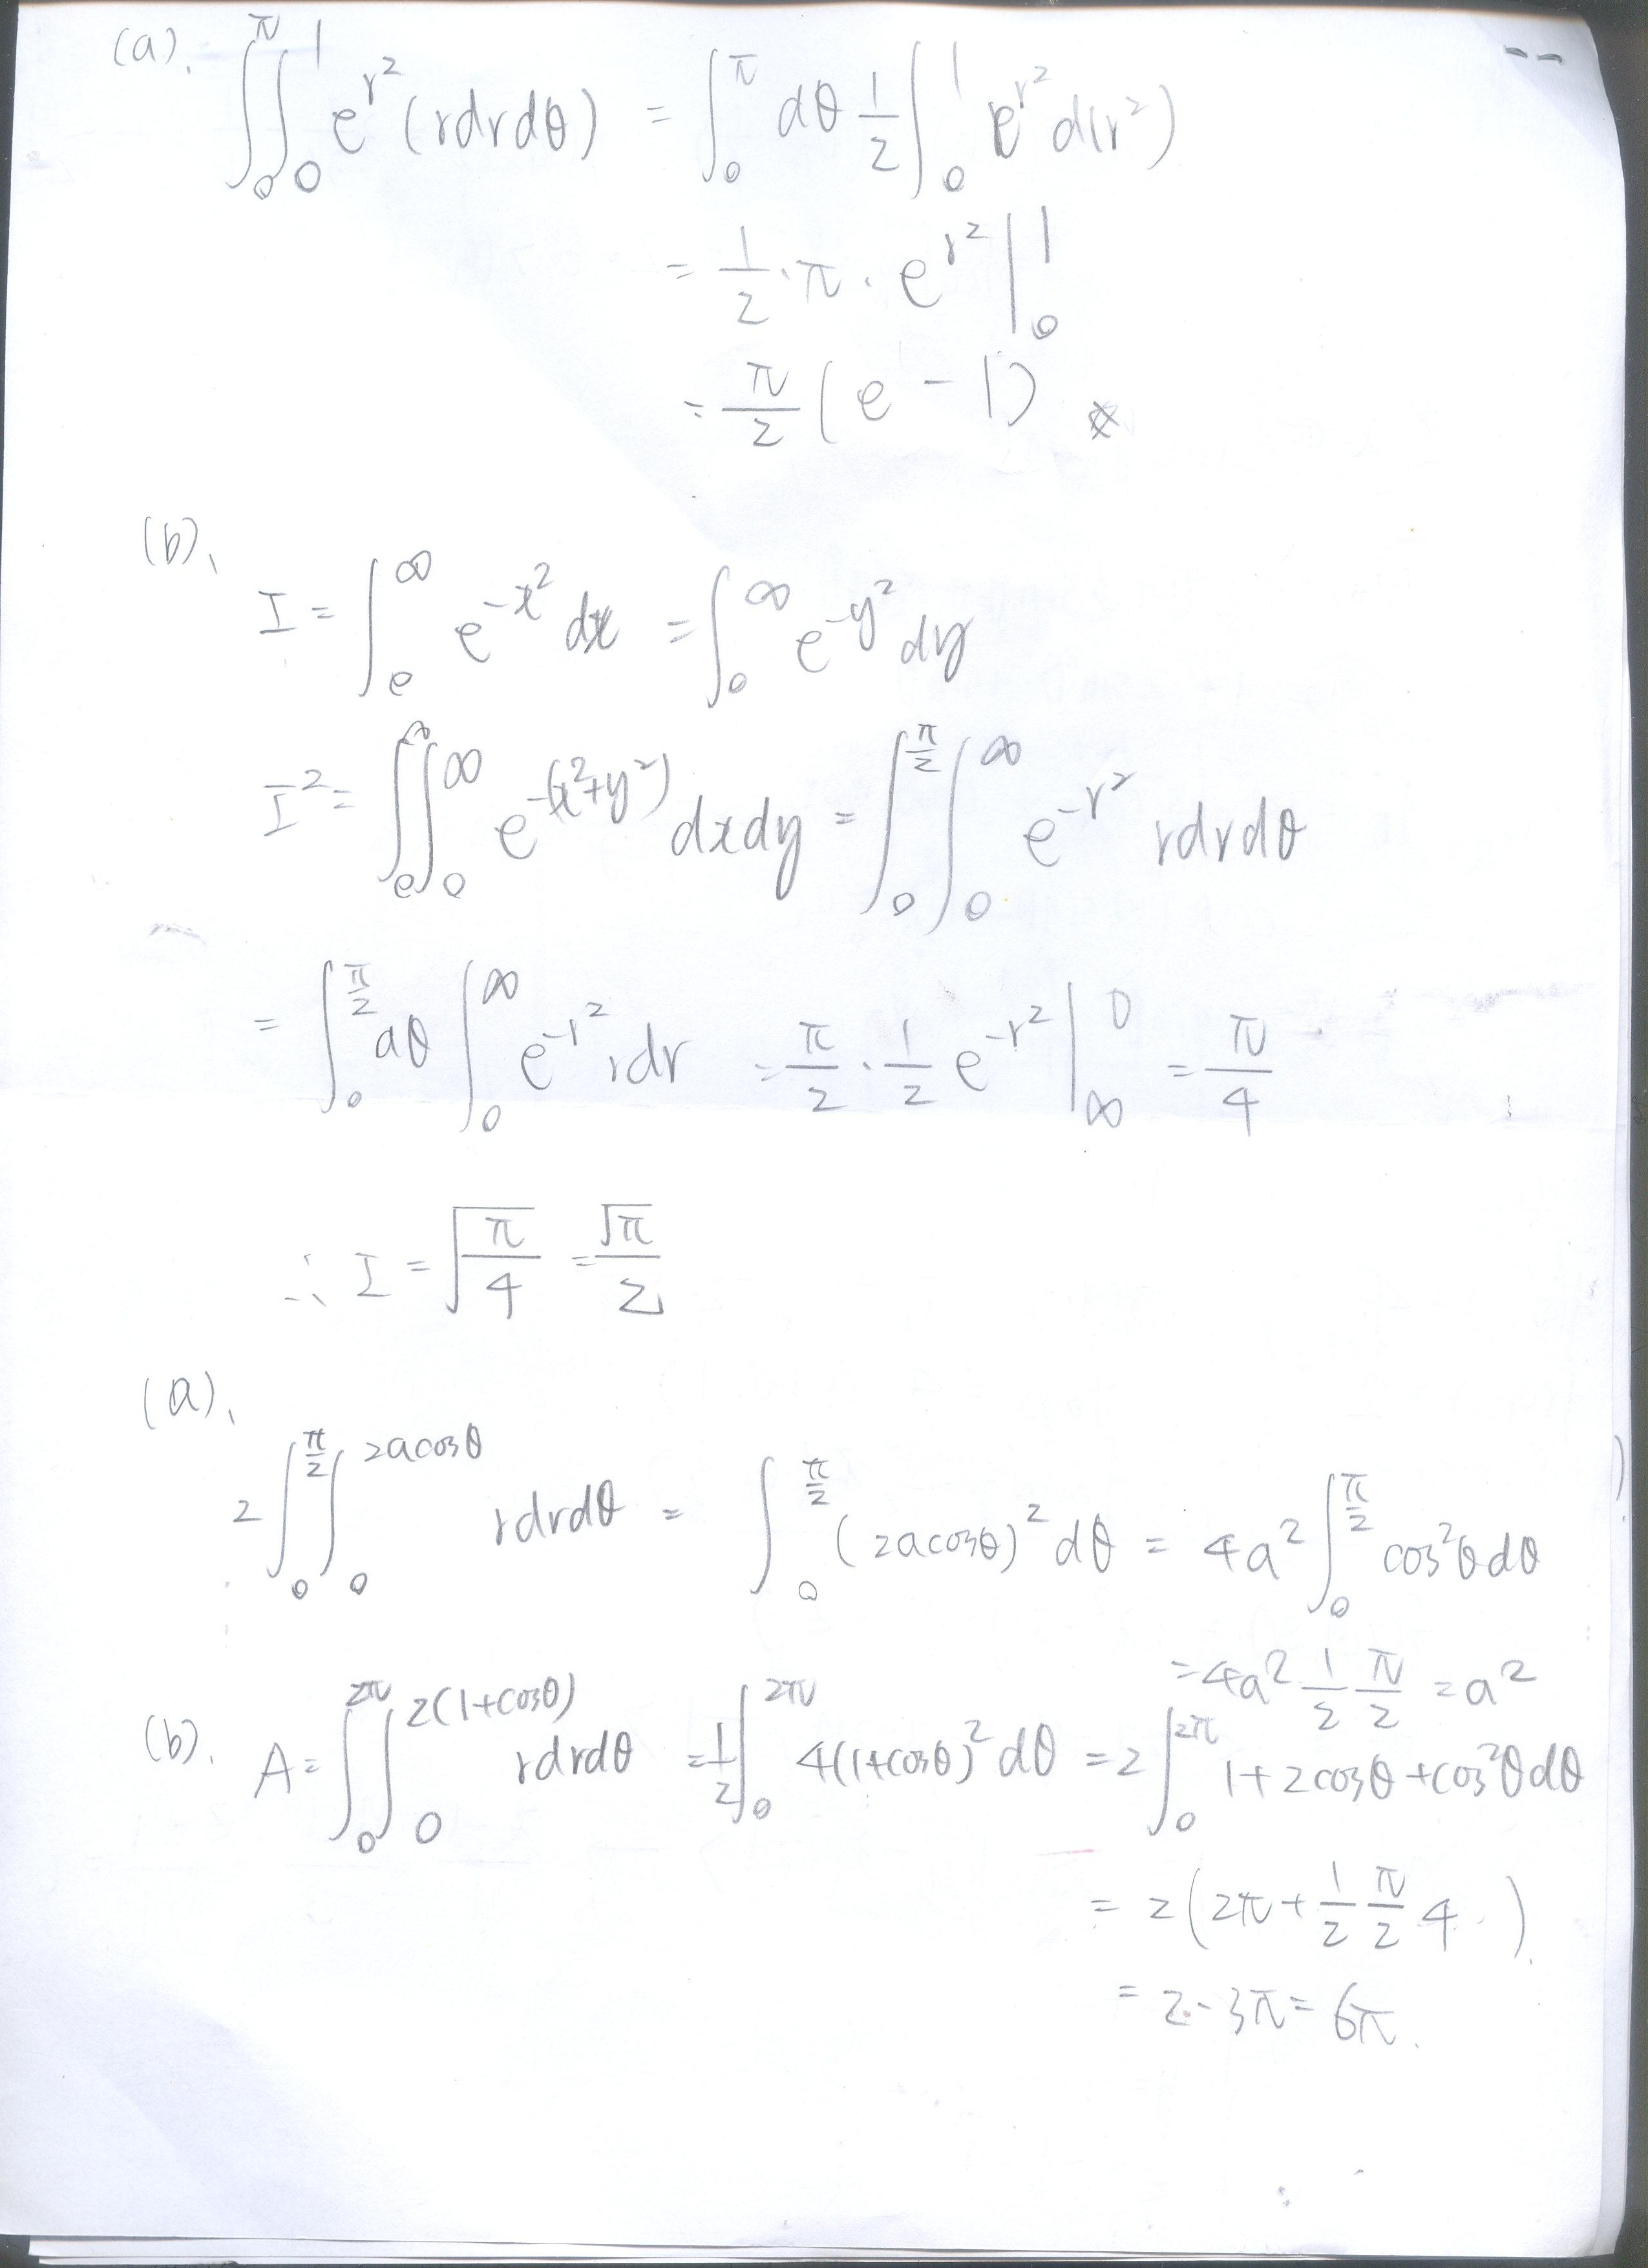 (a). ∫₀^π ∫₀^1 e^{r²} (r dr dθ) = ∫₀^π dθ 1/2 ∫₀^1 e^{r²} d(r²)
= 1/2 · π · e^{r²} |₀^1
= π/2 (e - 1)
(b)、
I = ∫₀^∞ e^{-x²} dx = ∫₀^∞ e^{-y²} dy
I² = ∫₀^∞ ∫₀^∞ e^{-(x²+y²)} dxdy = ∫₀^{π/2} ∫₀^∞ e^{-r²} r dr dθ
= ∫₀^{π/2} dθ ∫₀^∞ e^{-r²} r dr = π/2 · 1/2 e^{-r²} |_∞^0 = π/4
∴ I = √(π/4) = √π/2
(a)、
2 ∫₀^{π/2} ∫₀^{2a cosθ} r dr dθ = ∫₀^{π/2} (2a cosθ)² dθ = 4a² ∫₀^{π/2} cos²θ dθ
= 4a² 1/2 π/2 = a²
(b). A = ∫₀^{2π} ∫₀^{2(1+cosθ)} r dr dθ = 1/2 ∫₀^{2π} 4(1+cosθ)² dθ = 2 ∫₀^{2π} 1+2cosθ+cos²θ dθ
= 2(2π + 1/2 π/2 4)
= 2·3π = 6π.